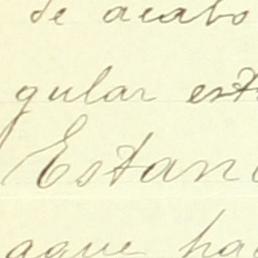 de acabo
gular est
Estan
aque ha